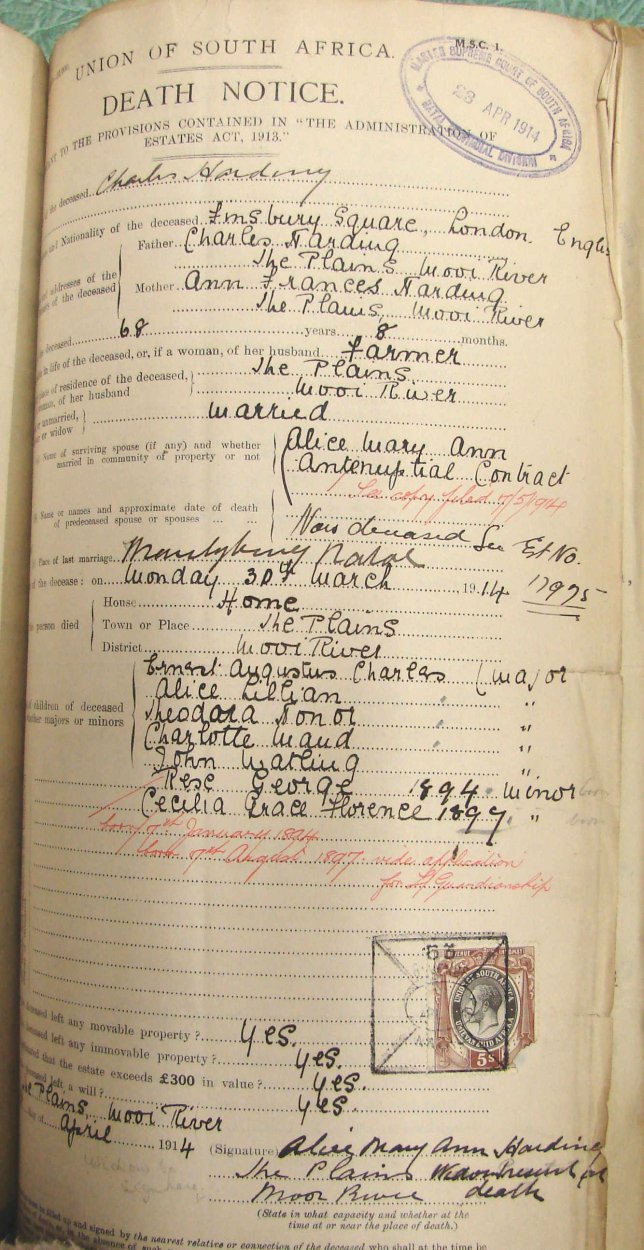 M.S.C. 1.
UNION OF SOUTH AFRICA.
DEATH NOTICE.
MASTER SUPREME COURT OF SOUTH AFRICA
23 APR 1914
NATAL PROVINCIAL DIVISION
TO THE PROVISIONS CONTAINED IN "THE ADMINISTRATION OF
ESTATES ACT, 1913."
the deceased Charles Harding
and Nationality of the deceased Finsbury Square, London. Englis
Father Charles Harding
addresses of the The Plains Mooi River
of the deceased Mother Ann Frances Harding
The Plains, Mooi River
deceased 68 years 8 months.
in life of the deceased, or, if a woman, of her husband Farmer
of residence of the deceased, The Plains
of her husband Mooi River
unmarried,
or widow married
Name of surviving spouse (if any) and whether Alice Mary Ann
married in community of property or not Antenuptial Contract
See copy filed 7/5/94
Name or names and approximate date of death
of predeceased spouse or spouses ... ...
Now deceased See Est No.
17975
Place of last marriage. Maritzburg Natal
of the decease: on Monday 30th March 1914
House Home
person died Town or Place The Plains
District Mooi River
Ernest Augustus Charles (major
Alice Lillian "
of children of deceased Theodora Honor "
whether majors or minors Charlotte Maud "
John Watling "
George 1894 minor
Cecilia Grace Florence 1897 "
born 9th January 1894
born 9th August 1897 vide application
for Guardianship
UNION OF SOUTH AFRICA
5s
deceased left any movable property? yes.
deceased left any immovable property? yes.
that the estate exceeds £300 in value? yes.
deceased left a will? yes.
The Plains, Mooi River
day of April 1914 (Signature) Alice Mary Ann Harding
The Plains Widow present at
Mooi River death
(State in what capacity and whether at the
time at or near the place of death.)
be filled up and signed by the nearest relative or connection of the deceased who shall at the time be